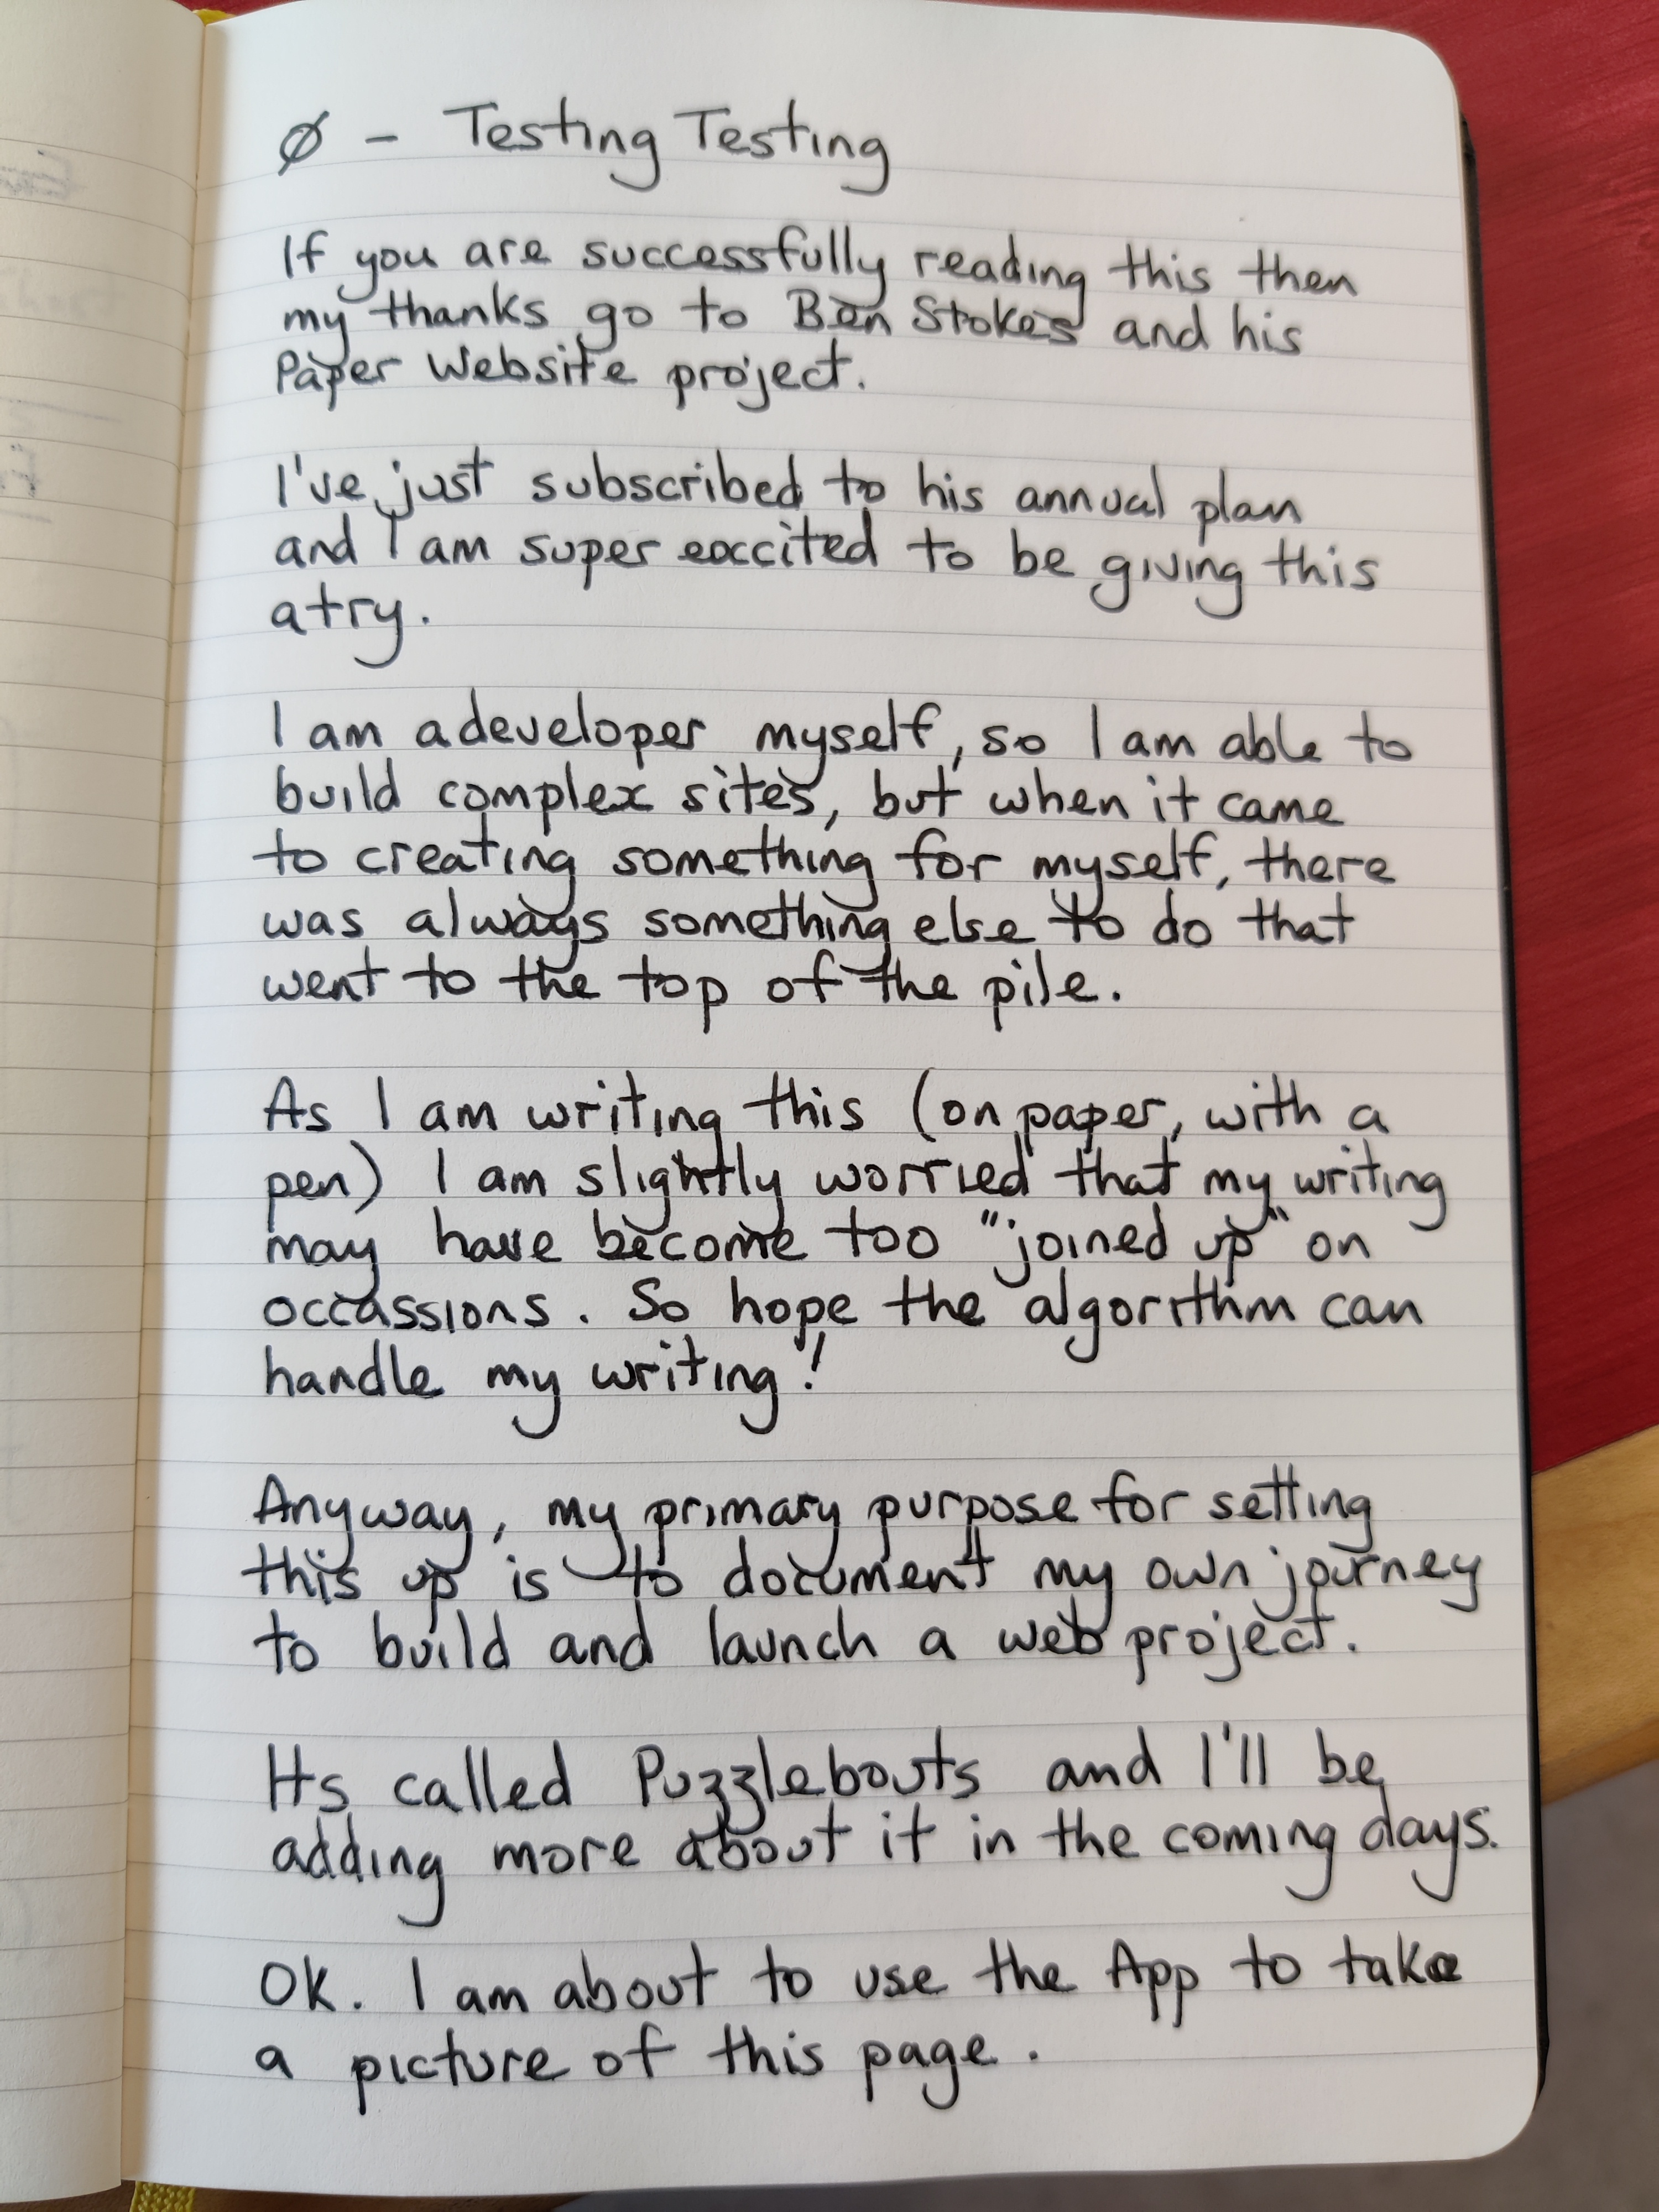 Ø - Testing Testing
If you are successfully reading this then
my thanks go to Ben Stokes and his
Paper Website project.
I've just subscribed to his annual plan
and I am super excited to be giving this
a try.
I am a developer myself, so I am able to
build complex sites, but when it came
to creating something for myself, there
was always something else to do that
went to the top of the pile.
As I am writing this (on paper, with a
pen) I am slightly worried that my writing
may have become too "joined up" on
occassions. So hope the algorithm can
handle my writing!
Anyway, my primary purpose for setting
this up is to document my own journey
to build and launch a web project.
Its called Puzzlebouts and I'll be
adding more about it in the coming days.
OK. I am about to use the App to take
a picture of this page.